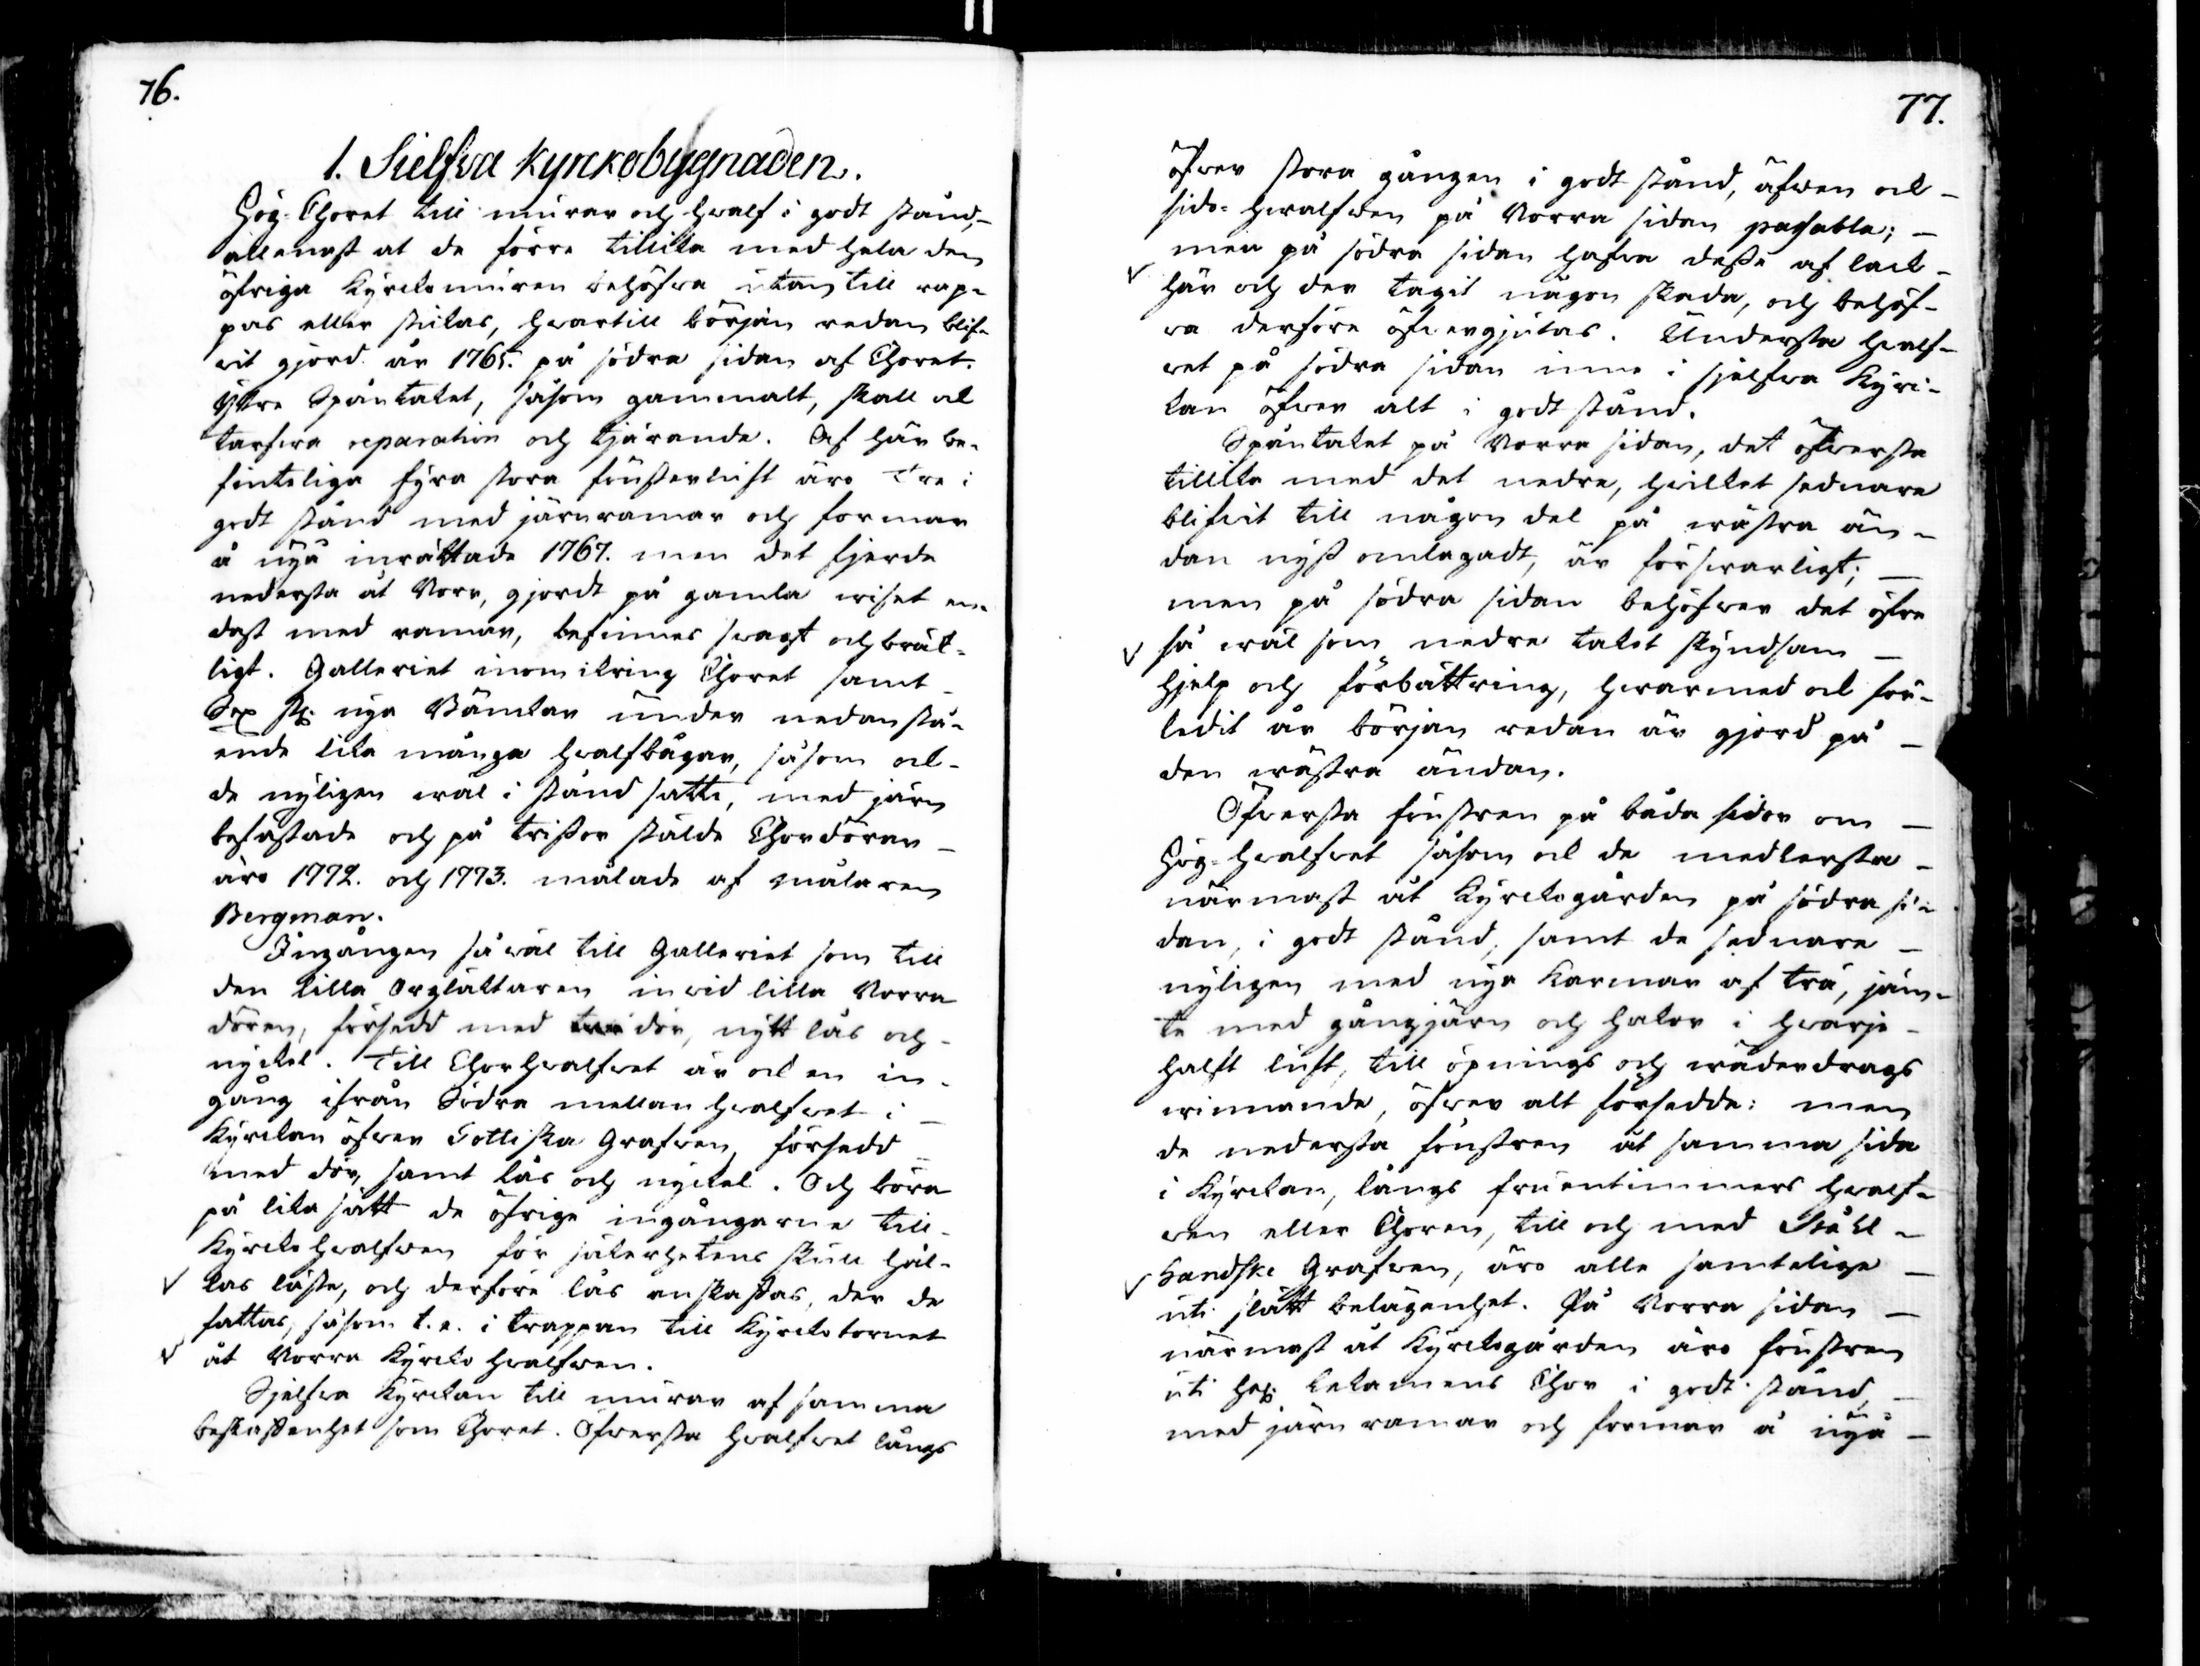 76.
1. Sielfva kyrckobygnaden.
Hög-Choret till murar och hvalf i godt stånd,
allenast at de förre tillika med hela den
öfriga Kyrckomuren behöfva utan till rap-
pas eller stickas, hvartill början redan blif-
vit gjord år 1765. på södra sidan af Choret.
Yttre Spåntaket, såsom gammalt, skall ock
tarfva reparation och tjärande. Af här be-
finteliga fyra stora fönsterluft äro Tre i
godt stånd med järnramar och formar
å nyå inrättade 1767. men det fjerde
nedersta åt Norr, gjordt på gamla viset en-
dast med ramar, befinnes svagt och bräk-
ligt. Galleriet inomikring Choret samt
Sex st: nya Bänckar under nedanstå-
ende lika många hvalfbågar, såsom ock
de nyligen väl i stånd satte, med järn
befästade och på trissor stälde Chordörar
äro 1772. och 1773. målade af målaren
Bergman.
Ingången så väl till Galleriet som till
den lilla Orgläktaren invid lilla Norra
dören, försedd med dör, nytt lås och
nyckel. Till Chorhvalfvet är ock en in-
gång ifrån Södra mellanhvalfvet i
Kyrckan öfver Tottiska Grafven, försedd
med dör, samt lås och nyckel. Och böra
på lika sätt de öfrige ingångarne till
Kyrckohvalfven för säkerhetens skull hål-
√ las låste, och derföre lås anskaffas, der de
fattas, såsom t. e. i trappan till Kyrckotornet
√ åt Norra Kyrckohvalfven.
Sjelfva Kyrckan till murar af samma
beskaffenhet som Choret. Öfversta hvalfvet långs
77.
öfver stora gången i godt stånd, äfven ock
sido-hvalfven på Norra sidan passable;
men på södra sidan hafva desse af läck
√ här och der tagit någon skada, och behöf-
va derföre öfvergjutas. Understa hvalf-
vet på södra sidan inne i sjelfva Kyrc-
kan öfver alt i godt stånd.
Spåntaket på Norra sidan, det öfversta
tillika med det nedra, hvilket sednare
blifvit till någon del på västra än-
dan nyss omlagadt, är försvarligt;
men på södra sidan behöfver det öfre
√ så väl som nedre taket skyndsam
hjelp och förbättring, hvarmed ock för-
ledit år början redan är gjord på
den västra ändan.
Öfversta fönstren på båda sidor om
Hög-hvalfvet såsom ock de medlersta
närmast åt Kyrckogården på södra si-
dan, i godt stånd, samt de sednare
nyligen med nya Karmar af trä, jäm-
te med gångjärn och hakor i hvarje
halft luft, till öpnings och väderdrags
vinnande, öfver alt försedde: men
de nedersta fönstren åt samma sida
i Kyrckan, långs fruentimmers hvalf-
ven eller Choren, till och med Stål-
√ Handske Grafven, äro alle samtelige
uti slätt belägenhet. På Norra sidan
närmast åt Kyrckogården äro fönstren
uti H: Lekamens Chor i godt stånd,
med järn ramar och formar å nyå